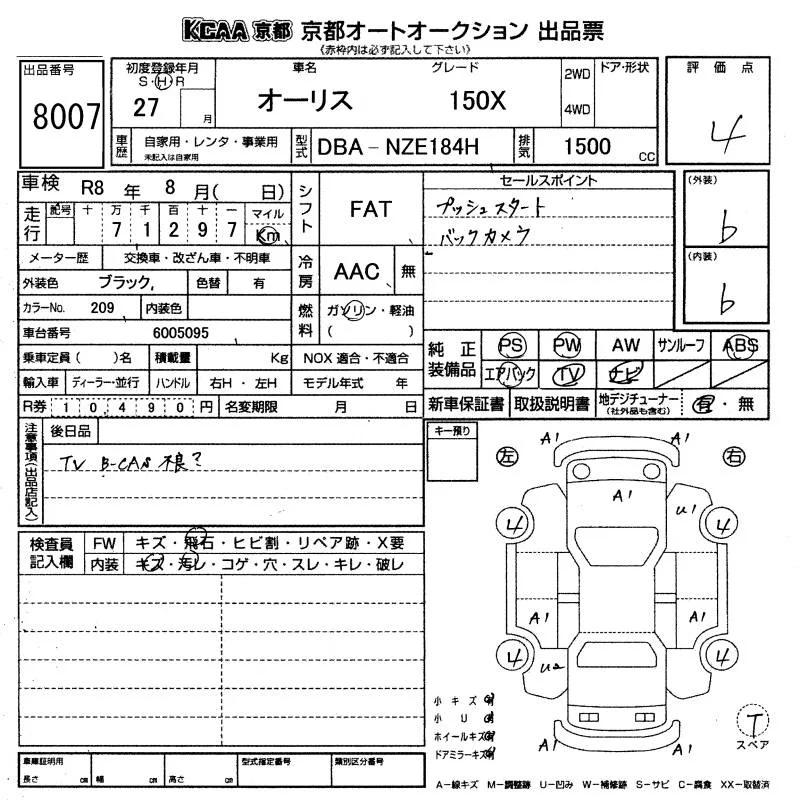 KCAA 京都 京都オートオークション 出品票
《赤枠内は必ず記入して下さい》
出品番号
8007
初度登録年月
S・H・R
27 月
車名
オーリス
グレード
150X
2WD
4WD
ドア・形状
評価点
4
車歴
自家用・レンタ・事業用
未記入は自家用
型式
DBA-NZE184H
排気
1500 CC
車検 R8 年 8 月( 日)
走行
記号 十 万 千 百 十 一 マイル
7 1 2 9 7 Km
メーター歴 交換車・改ざん車・不明車
外装色 ブラック, 色替 有
カラーNo. 209 内装色
車台番号 6005095
乗車定員( )名 積載量 Kg
輸入車 ディーラー・並行 ハンドル 右H・左H
R券 10,490円 名変期限 月 日
シフト FAT
冷房 AAC 無
燃料 ガソリン・軽油
( )
NOX 適合・不適合
モデル年式 年
セールスポイント
プッシュスタート
バックカメラ
(外装)
b
(内装)
b
純正装備品
PS PW AW サンルーフ ABS
エアバック TV ナビ
新車保証書 取扱説明書 地デジチューナー 有・無
(社外品も含む)
注意事項(出品店記入)
後日品
TV B-CAS 不良?
キー預り
左
右
検査員記入欄
FW キズ・飛石・ヒビ割・リペア跡・X要
内装 キズ・汚レ・コゲ・穴・スレ・キレ・破レ
A1 A1
A1 U1
4 4
A1 A1
4 4
U2
A1 A1
小キズ 有
小U 有
ホイールキズ 有
ドアミラーキズ 有
T
スペア
車庫証明用
長さ cm 幅 cm 高さ cm
型式指定番号
類別区分番号
A-線キズ M-調整跡 U-凹み W-補修跡 S-サビ C-腐食 XX-取替済